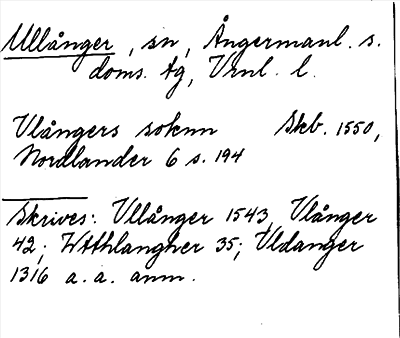 Ullånger, sn, Ångermanl. s.
doms. tg, Vrnl. l.
Vlångers soknn Skb. 1550,
Nordlander 6 s. 194
Skrives: Vllånger 1543, Vlånger
42; Wtthlangher 35; Vldanger
1316 a. a. anm.